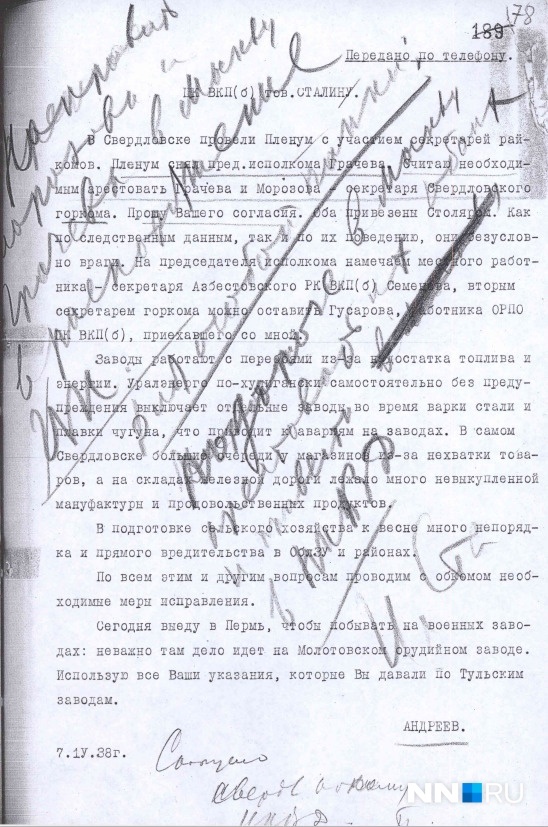 178
189
Передано по телефону.
ЦК ВКП(б) тов.СТАЛИНУ.
В Свердловске провели Пленум с участием секретарей рай-
комов. Пленум снял пред.исполкома Грачева. Считаю необходи-
мым арестовать Грачева и Морозова секретаря Свердловского
горкома. Прошу Вашего согласия. Оба привезены Столяром. Как
по следственным данным, так и по их поведению, они безуслов-
но враги. На председателя исполкома намечаем местного работ-
ника секретаря Азбестовского РК ВКП(б) Семенова, вторым
секретарем горкома можно оставить Гусарова, работника ОРПО
ЦК ВКП(б), приехавшего со мной.
Заводы работают с перебоями из-за недостатка топлива и
энергии. Уралэнерго по-хулигански самостоятельно без преду-
преждения выключает отдельные заводы во время варки стали и
плавки чугуна, что приводит к авариям на заводах. В самом
Свердловске большие очереди у магазинов из-за нехватки това-
ров, а на складах железной дороги лежало много невыкупленной
мануфактуры и продовольственных продуктов.
В подготовке сельского хозяйства к весне много непоряд-
ка и прямого вредительства в ОблЗУ и районах.
По всем этим и другим вопросам проводим с обкомом необ-
ходимые меры исправления.
Сегодня выеду в Пермь, чтобы побывать на военных заво-
дах: неважно там дело идет на Молотовском орудийном заводе.
Использую все Ваши указания, которые Вы давали по Тульским
заводам.
АНДРЕЕВ.
7.1У.38г.
Морозова и
Грачева в Москву
в распоряжение
ЦК.
в Москву
в НКВД
И. Ст
NN.RU